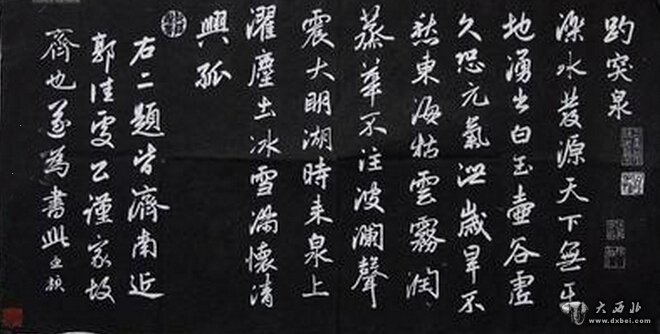 趵突泉
濼水發源天下無平
地湧出白玉壺谷虛
久恐元氣洩歲旱不
愁東海枯雲霧潤
蒸華不注波瀾聲
震大明湖時來泉上
濯塵土冰雪滿懷清
興孤
右二題皆濟南近
郭佳處公謹家故
齊也遂為書此孟頫
大西北
www.dxbei.com